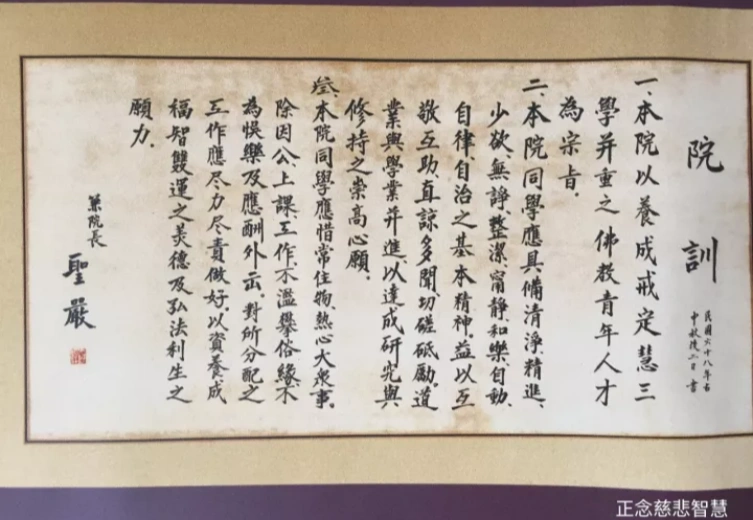 院訓
民國六十八年古
中秋後二日書
一、本院以養成戒定慧三
學并重之佛教青年人才
為宗旨。
二、本院同學應具備清淨、精進、
少欲、無諍、整潔、甯靜、和樂、自動、
自律、自治之基本精神、益以互
敬互助、直諒多聞、切磋砥勵、道
業與學業并進以達成研究與
修持之崇高心願。
叁、本院同學應惜常住物、熱心大衆事。
除因公、上課、工作、不濫攀俗緣、不
為娛樂及應酬外出。對所分配之
工作應尽力尽責做好。以資養成
福智雙運之美德及弘法利生之
願力.
兼院長
聖嚴
正念慈悲智慧